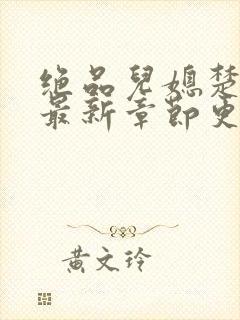 绝品儿媳楚
最新章节更
黄文玲